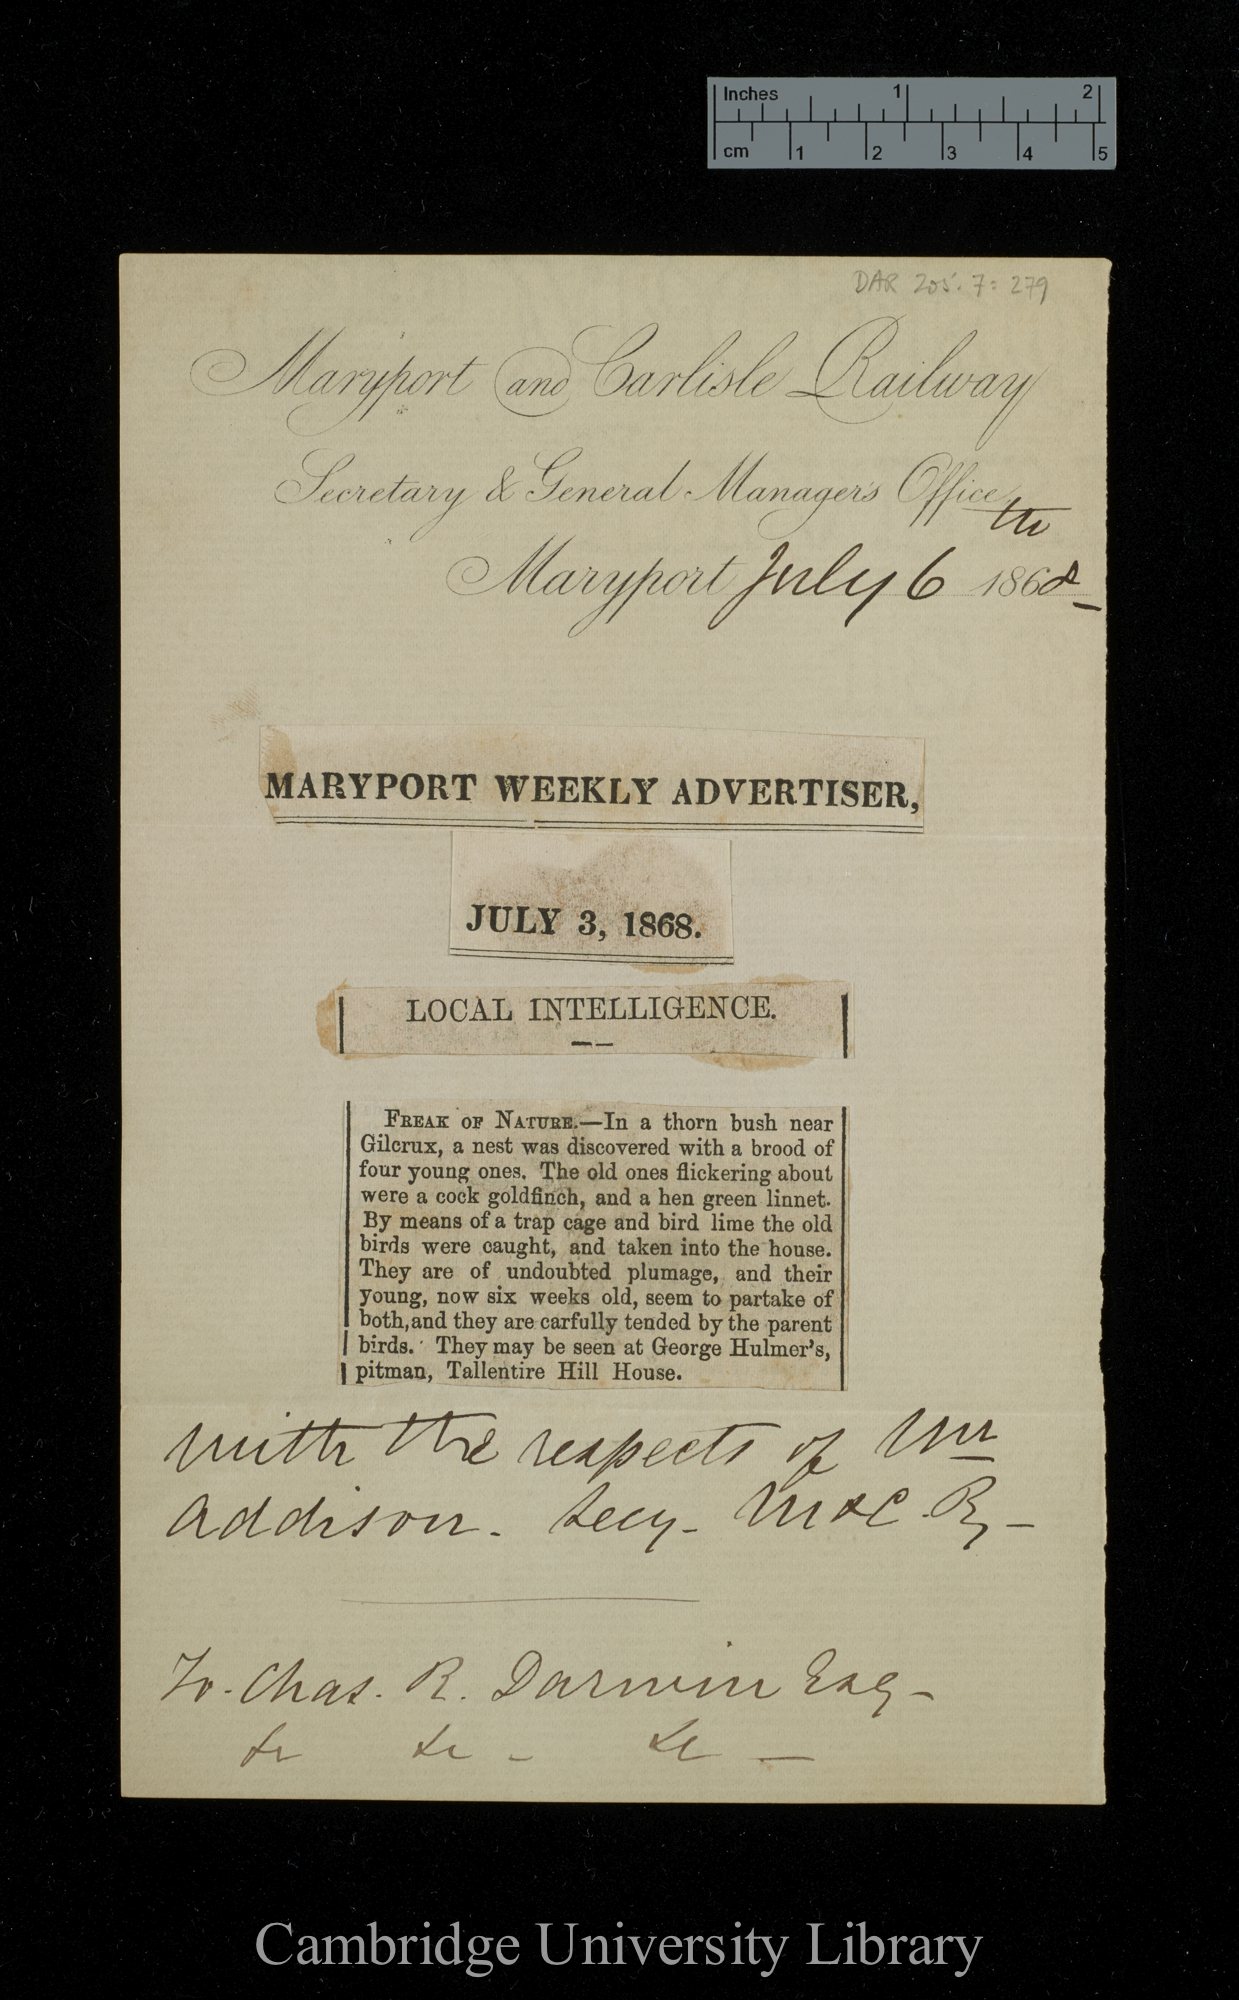 Inches 1 2
cm 1 2 3 4 5
DAR 205.7: 279
Maryport and Carlisle Railway
Secretary & General Manager's Office,
Maryport July 6th 1868
MARYPORT WEEKLY ADVERTISER,
JULY 3, 1868.
LOCAL INTELLIGENCE.
FREAK OF NATURE.—In a thorn bush near
Gilcrux, a nest was discovered with a brood of
four young ones. The old ones flickering about
were a cock goldfinch, and a hen green linnet.
By means of a trap cage and bird lime the old
birds were caught, and taken into the house.
They are of undoubted plumage, and their
young, now six weeks old, seem to partake of
both, and they are carfully tended by the parent
birds. They may be seen at George Hulmer's,
pitman, Tallentire Hill House.
With the respects of Mr
Addison. Secy- M&C. Ry-
To. Chas. R. Darwin Esq-
&c &c - &c -
Cambridge University Library